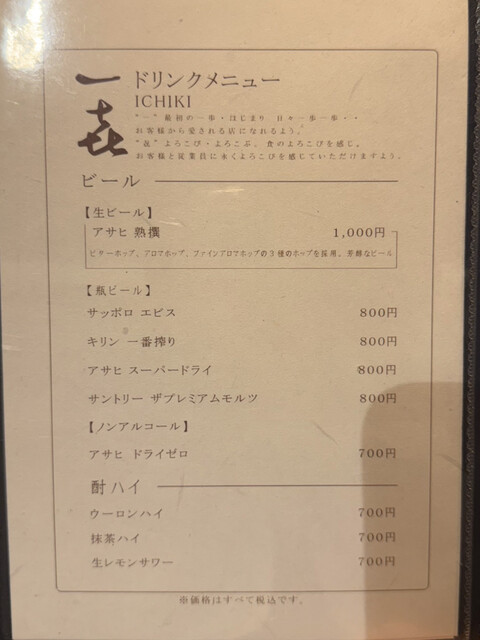 一㐂
ドリンクメニュー
ICHIKI
"一" 最初の一歩・はじまり 日々一歩一歩・・
お客様から愛される店になれるよう。
"㐂" よろこび・よろこぶ。食のよろこびを感じ。
お客様と従業員に永くよろこびを感じていただけますよう。
ビール
【生ビール】
アサヒ 熟撰 1,000円
ビターホップ、アロマホップ、ファインアロマホップの3種のホップを採用。芳醇なビール
【瓶ビール】
サッポロ エビス 800円
キリン 一番搾り 800円
アサヒ スーパードライ 800円
サントリー ザプレミアムモルツ 800円
【ノンアルコール】
アサヒ ドライゼロ 700円
酎ハイ
ウーロンハイ 700円
抹茶ハイ 700円
生レモンサワー 700円
※価格はすべて税込です。